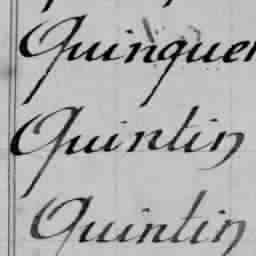 Quinquer
Quintin
Quintin